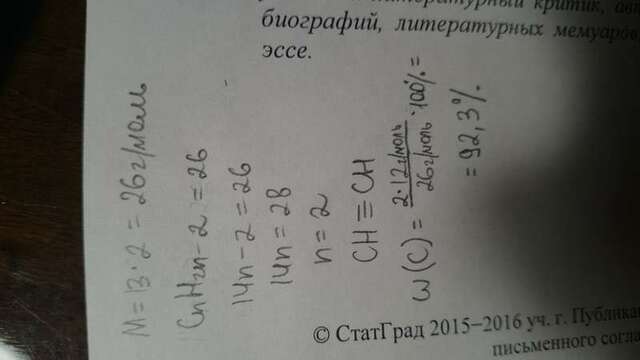 литературный критик, ав
биографий, литературных мемуаров
эссе.
M = 13 · 2 = 26 г/моль
CnH2n-2 = 26
14n - 2 = 26
14n = 28
n = 2
CH ≡ CH
ω(C) = 2·12 г/моль / 26 г/моль · 100% =
= 92,3%.
© СтатГрад 2015−2016 уч. г. Публика
письменного согла